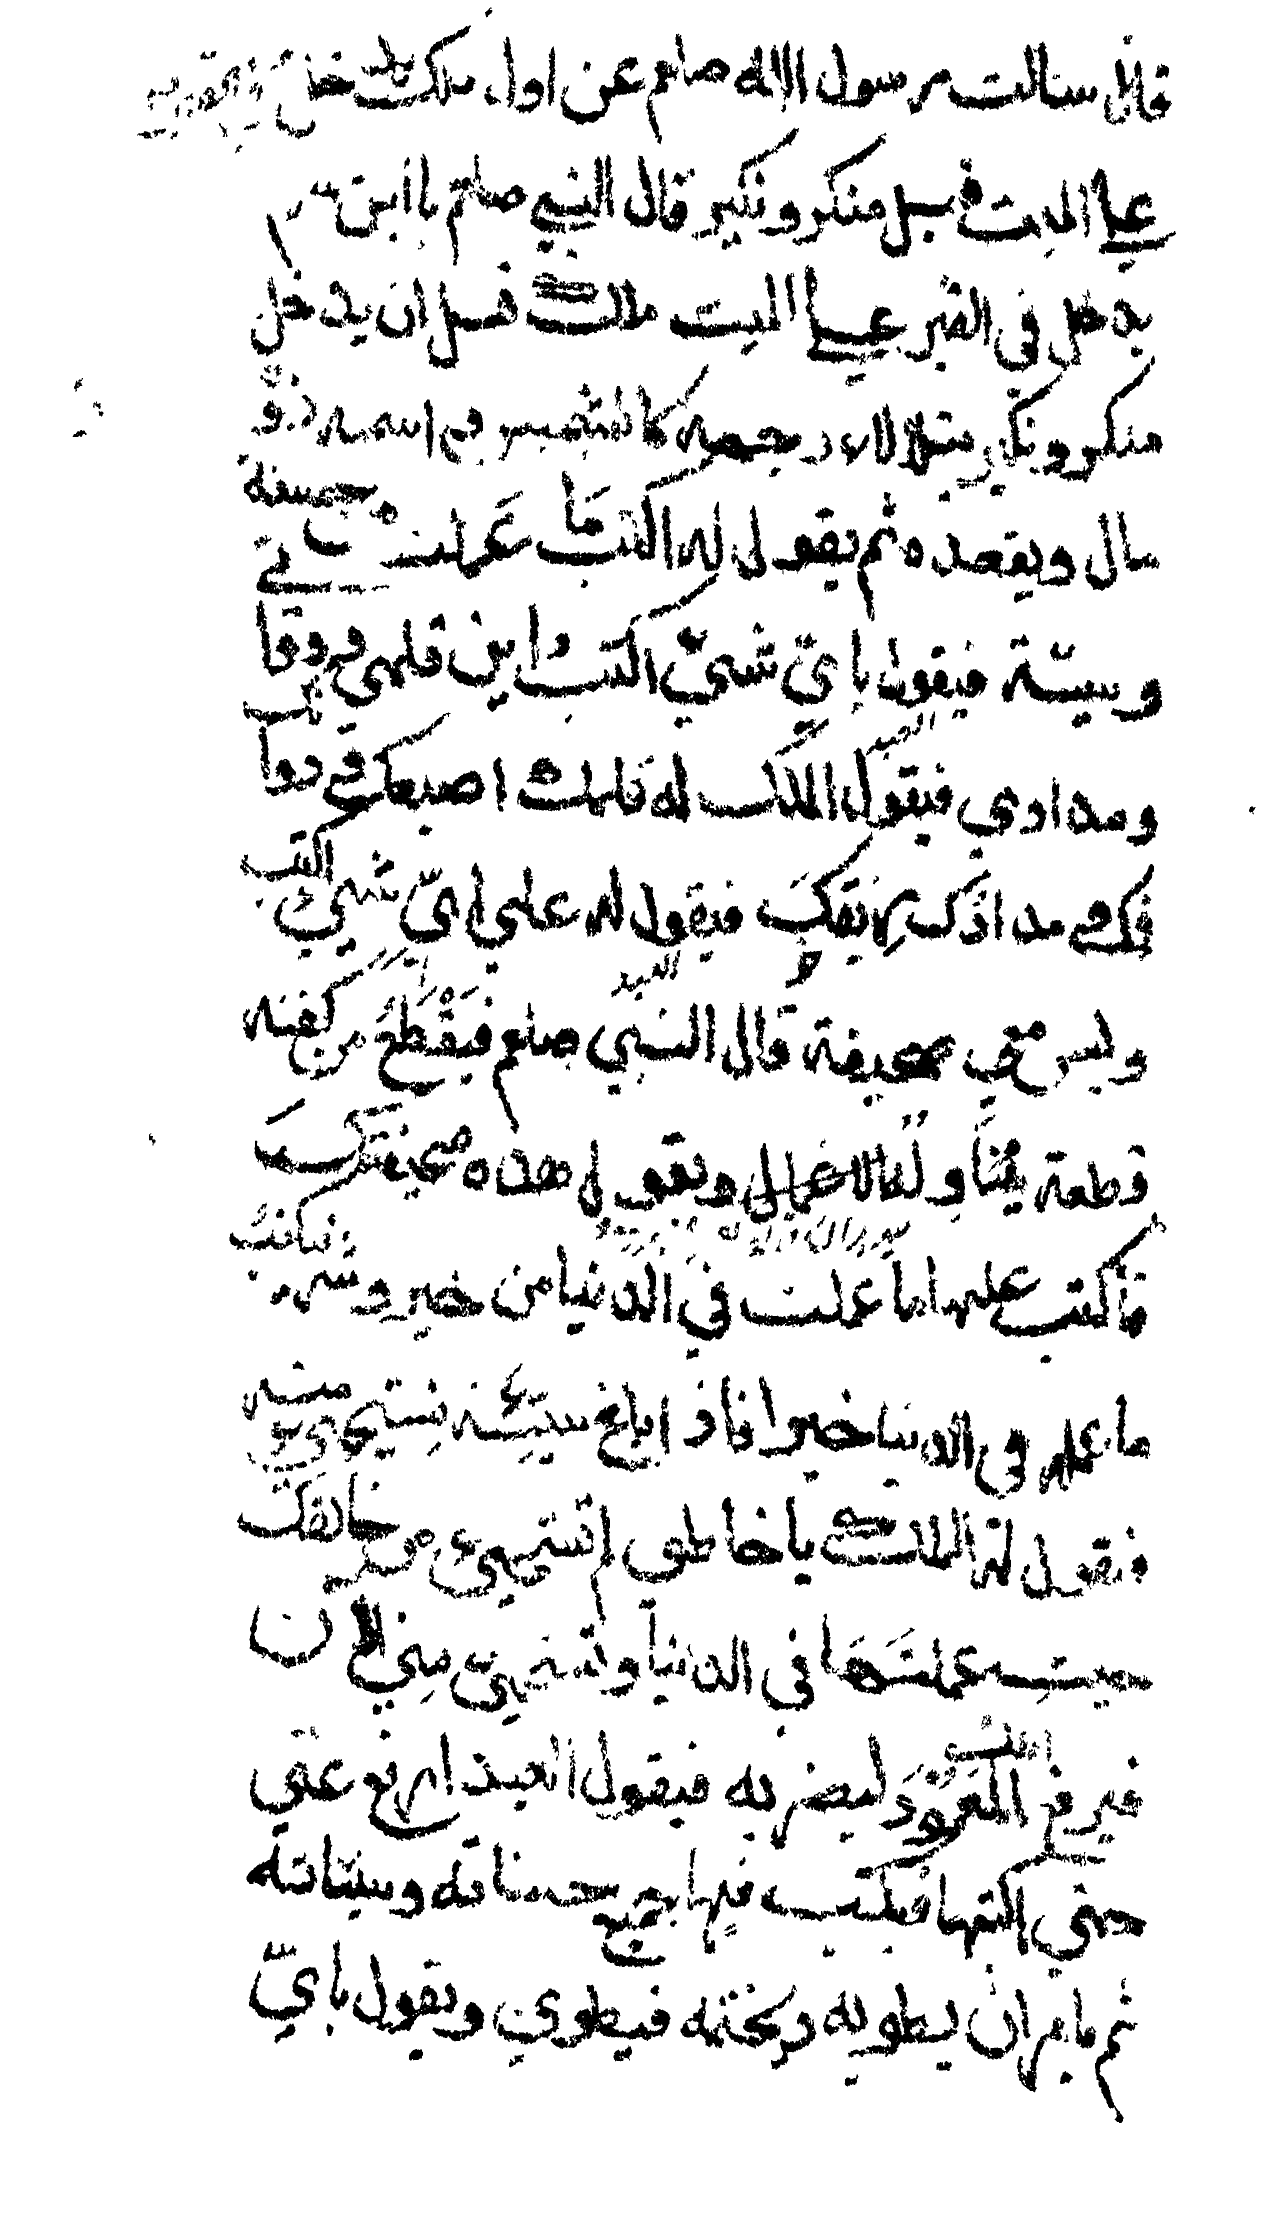 قال سالت رسول الله صلعم عن اول ملك يدخل في القبر
على الميت قبل منكر ونكير قال النبي صلعم يا ابن سلام
يدخل في القبر على الميت ملك قبل ان يدخل
منكر ونكير يتلالاء وجهه كالشمس واسمه
ويقعده ثم يقول له اكتب ما عملت من حسنة
وسيئة فيقول باي شيئ اكتب واين قلمي ودواتي
ومدادي فيقول الملك له قلمك اصبعك ودواتك
فمك ومدادك ريقك فيقول له على اي شيئ اكتب
وليس معي صحيفة قال النبي صلعم فيقطع من كفنه
قطعة ويقول له هذه صحيفتك
فاكتب عليها ما عملت في الدنيا من خير وشر فيكتب
ما عمله في الدنيا خيرا فاذا بلغ سيئة فيستحيى منه
فيقول له الملك يا خاطي لم تستحيى من خالقك
حيث عملتها في الدنيا وتستحيى مني الان
فيرفع الملك العمود ليضربه فيقول العبد ارفع عني
حتى اكتبها فيكتب فيها جميع حسناته وسيئاته
ثم يامر ان يطويه ويختمه فيطوي ويقول باي